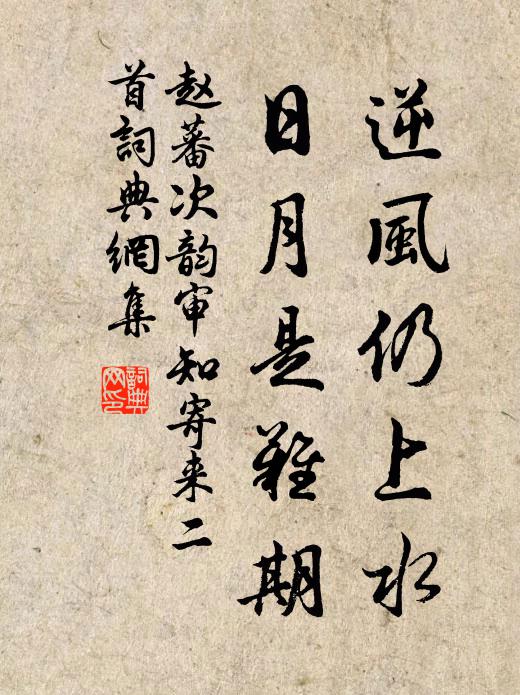 逆風仍上水
日月是難期
赵蕃次韵审知寄来二
首詞典網集
詞典網印